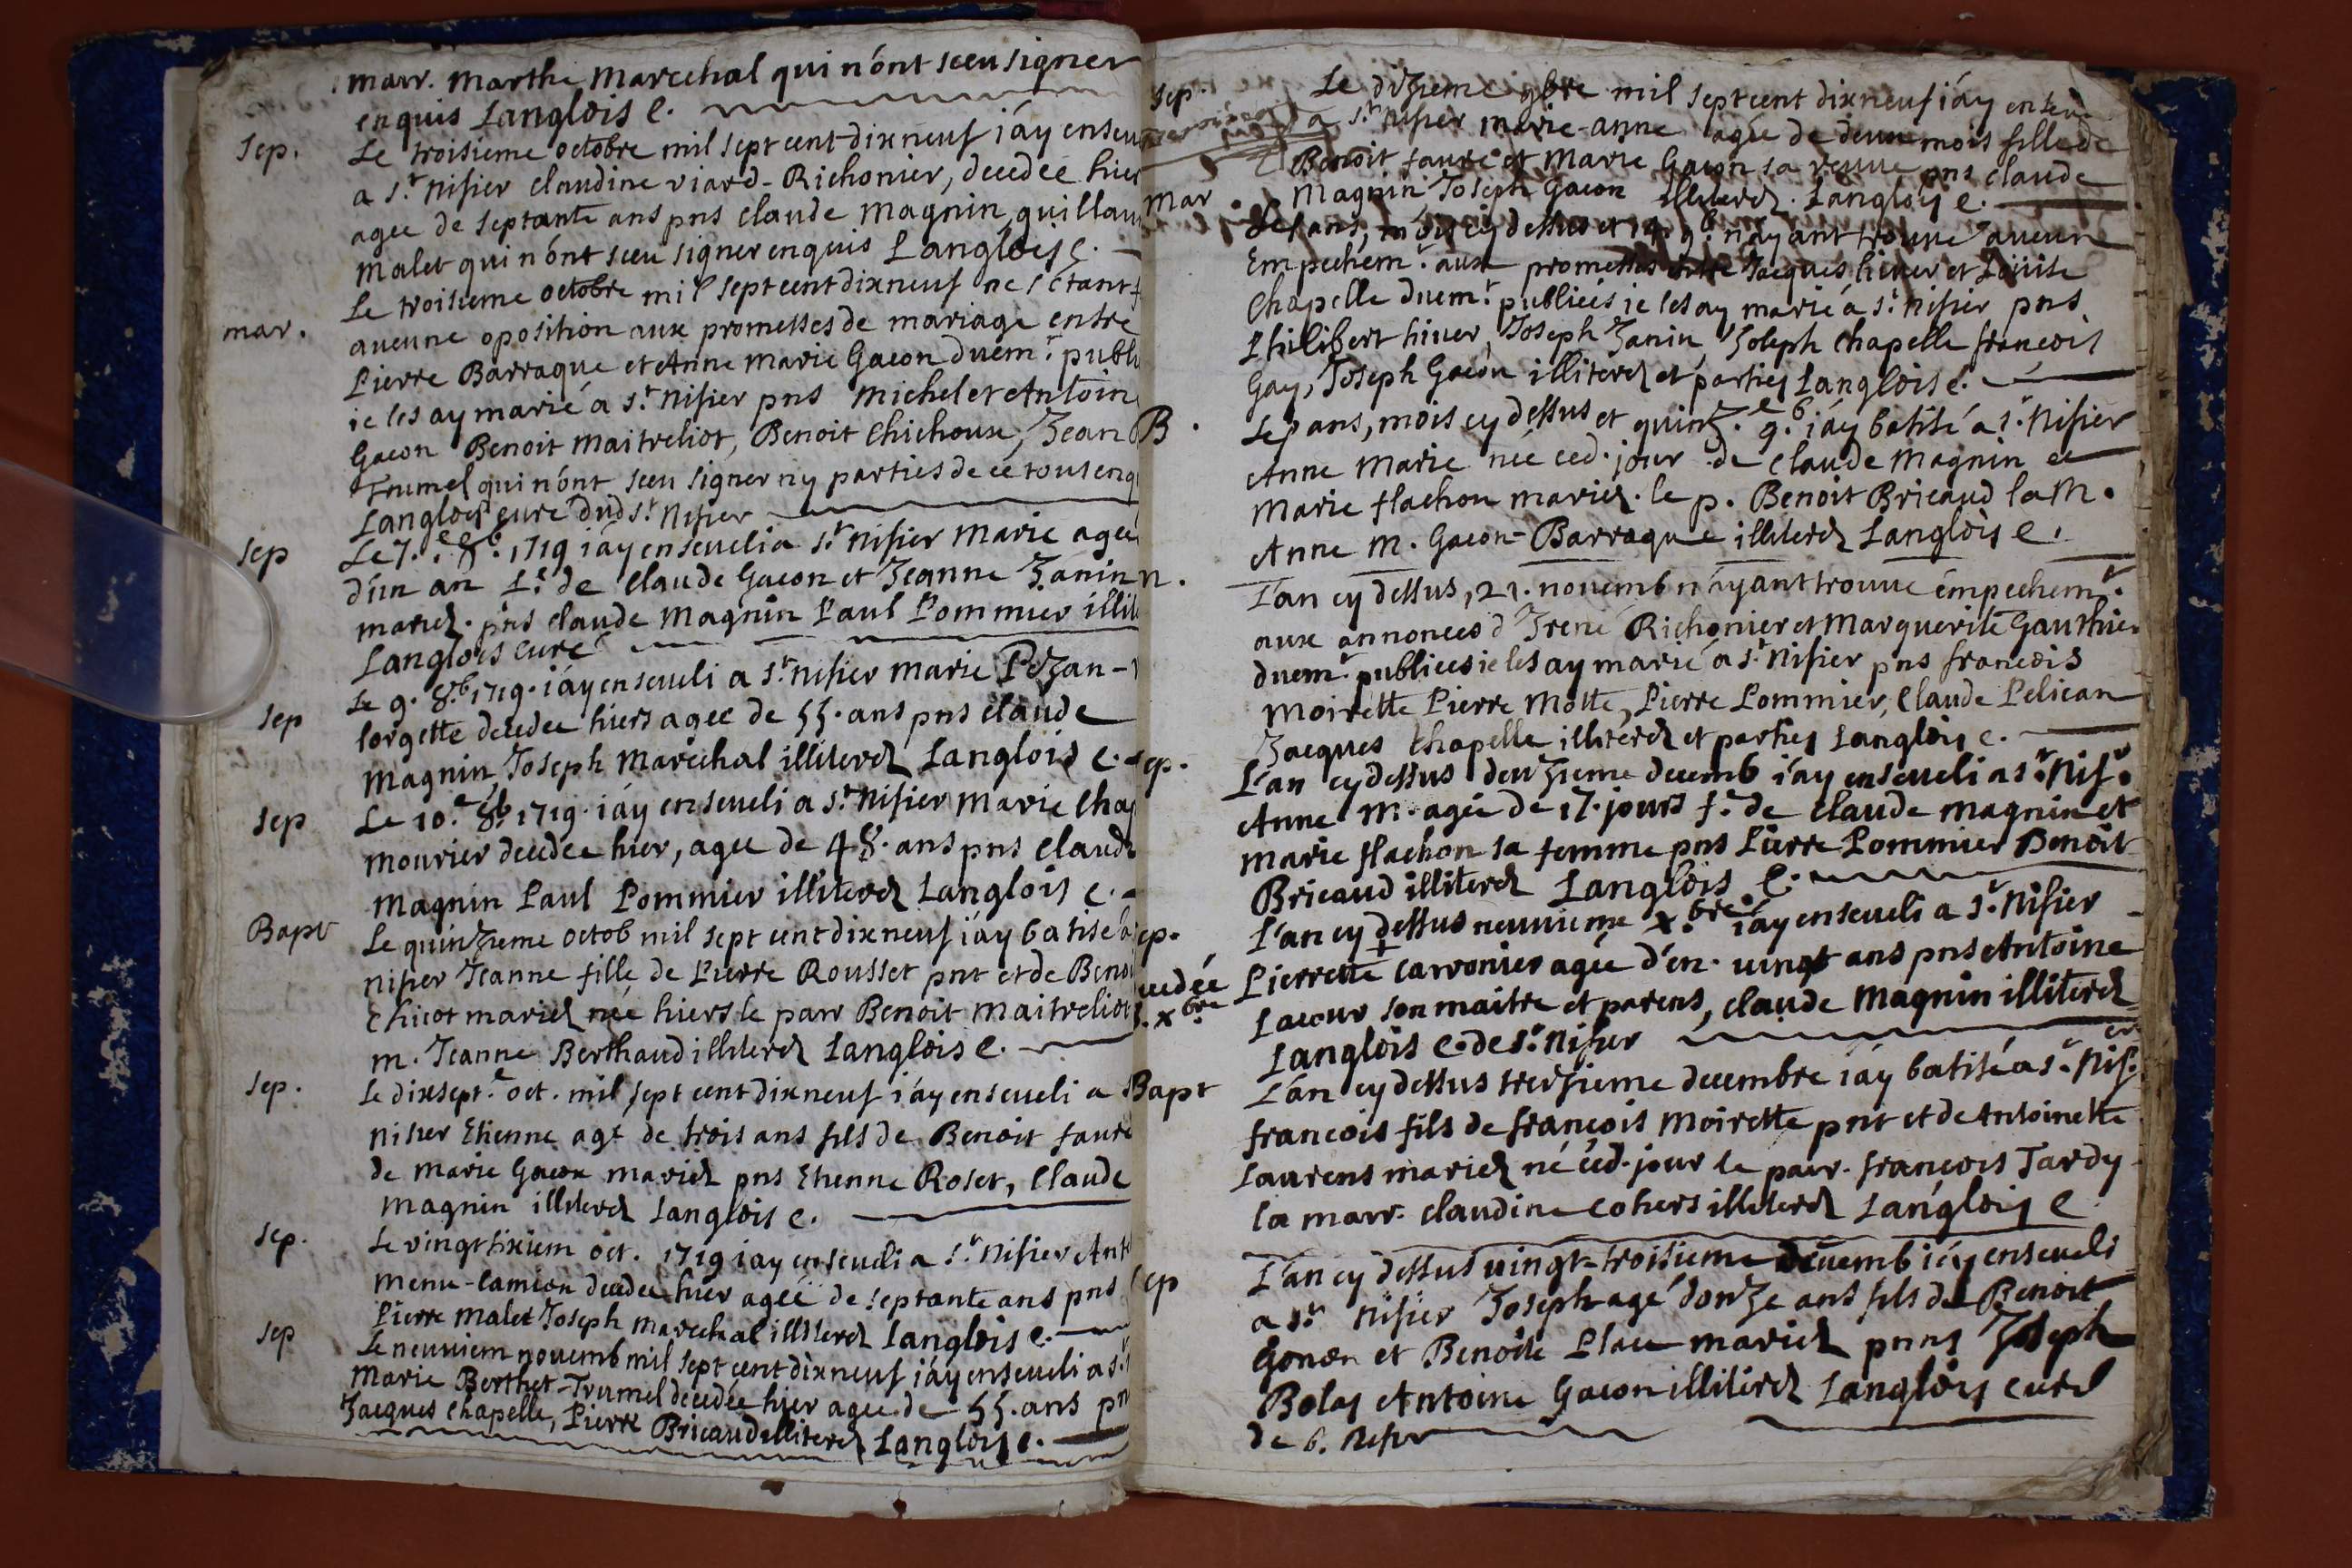 marr. Marthe Marechal qui n'ont sceu signer
enquis Langlois c.
Sep.
Le troisieme octobre mil sept cent dixneuf i'ay enseu
a St. Nisier claudine viard-Richonier, decedée hier
agee de septante ans pns claude Magnin, guillau
Malet qui n'ont sceu signer enquis Langlois c.
mar.
Le troisieme octobre mil sept cent dixneuf ne s'étant
aucune oposition aux promesses de mariage entre
Pierre Barraque et Anne Marie Gacon duemt. publi
ie les ay marié a St. Nisier pns Michel et Antoin
Gacon Benoit Maitreliot, Benoit Chichoux, Jean
Trumel qui n'ont sceu signer ny parties de ce tous enq
Langlois curé dud St. Nisier
Sep
Le 7.e 8b. 1719 i'ay enseueli a St. Nisier Marie agee
d'un an f.e de Claude Gacon et Jeanne Janin
mariez. pns claude Magnin Paul Pommier illit
Langlois curé
Sep
Le 9. 8b. 1719. i'ay enseueli a St. Nisier Marie Pozan-
lorgette decedee hiers agee de 55. ans pns claude
Magnin, Joseph Marechal illiterez Langlois c.
Sep
Le 10.e 8b. 1719. i'ay enseueli a St. Nisier Marie Chap
mourier decedee hier, agee de 48. ans pns Claude
Magnin Paul Pommier illiterez Langlois c.
Bapt
Le quinzieme octob mil sept cent dixneuf i'ay batisé a
Nisier Jeanne fille de Pierre Rousset pnt et de Benoi
Chicot mariez née hiers le parr Benoit Maitreliot
m. Jeanne Berthaud illiterez Langlois c.
Sep.
Le dixsept.e oct. mil sept cent dixneuf i'ay enseueli a
Nisier Etienne agé de trois ans fils de Benoit faure
de Marie Gacon mariez pns Etienne Roset, Claude
Magnin illiterez Langlois c.
Sep.
Le vingtsixiem oct. 1719 i'ay enseueli a St. Nisier Ant
menu-camion decedee hier agée de septante ans pns
Pierre Malet Joseph Marechal illiterez Langlois c.
Sep
Le neuuiem nouemb mil sept cent dixneuf i'ay enseueli a S
Marie Berthet-Trumel decedée hier agee de 55. ans pn
Jacques Chapelle, Pierre Bricaud illiterez Langlois c.
Sep.
Le dizieme 9bre mil sept cent dixneuf i'ay enseue
a St. Nisier marie-anne agée de deux mois fille de
Benoit faure et Marie Gacon sa veuue pns claude
Magnin, Joseph Gacon illiterez. Langlois c.
Mar.
Les ans, mois cy dessus et 14 9b. n'ayant trouue aucun
Empechemt. aux promesses entre Jacques hiuer et Louise
Chapelle duemt. publiées ie les ay marié a St. Nisier pns
Philibert hiuer, Joseph Janin, Joseph Chapelle francois
Gay, Joseph Gacon illiterez et parties Langlois c.
B.
Les ans, mois cy dessus et quinz.e 9b. i'ay batisé a St. Nisier
Anne Marie née ced. jour de Claude Magnin et
Marie flachon mariez. le p. Benoit Bricaud la M.
Anne M. Gacon-Barraque illiterez Langlois c.
n.
L'an cy dessus, 21. nouemb n'ayant trouue empechemt.
aux annonces d'Irené Richonier et Marguerite Gauthier
duemt. publiees ie les ay marié a St. Nisier pns francois
Moirette Pierre Motte, Pierre Pommier, Claude Pelican
Jacques Chapelle illiterez et parties Langlois c.
ep.
L'an cy dessus deuzieme decemb i'ay enseueli a St. Nisr.
Anne M. agée de 17. jours f.e de Claude Magnin et
Marie flachon sa femme pns Pierre Pommier Benoit
Bricaud illiterez Langlois c.
ep.
L'an cy dessus neuuieme x.bre i'ay enseueli a St. Nisier
Pierrette carronier agée d'en. uingt ans pns Antoine
cedée
8. xbre
Lacour son maitre et parens, claude Magnin illiterez
Langlois c. de St. Nisier
Bapt
L'an cy dessus treizieme decembre i'ay batisé a St. Nis.er
francois fils de françois Moirette pnt et de Antoinette
Laurens mariez né ced. jour le parr. francois Tardy
la marr. claudine cohers illiterez Langlois c
ep
L'an cy dessus uingt-troisieme decemb i'ay enseueli
a St. Nisier Joseph agé d'onze ans fils de Benoit
Gonon et Benoite Place mariez pnns Joseph
Bolas Antoine Gacon illiterez Langlois curé
de S. Nisier